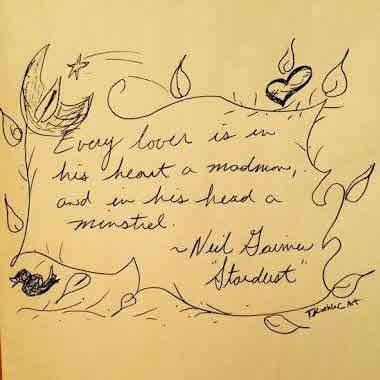 Every lover is in
his heart a madman,
and in his head a
minstrel.
~ Neil Gaiman
"Stardust"